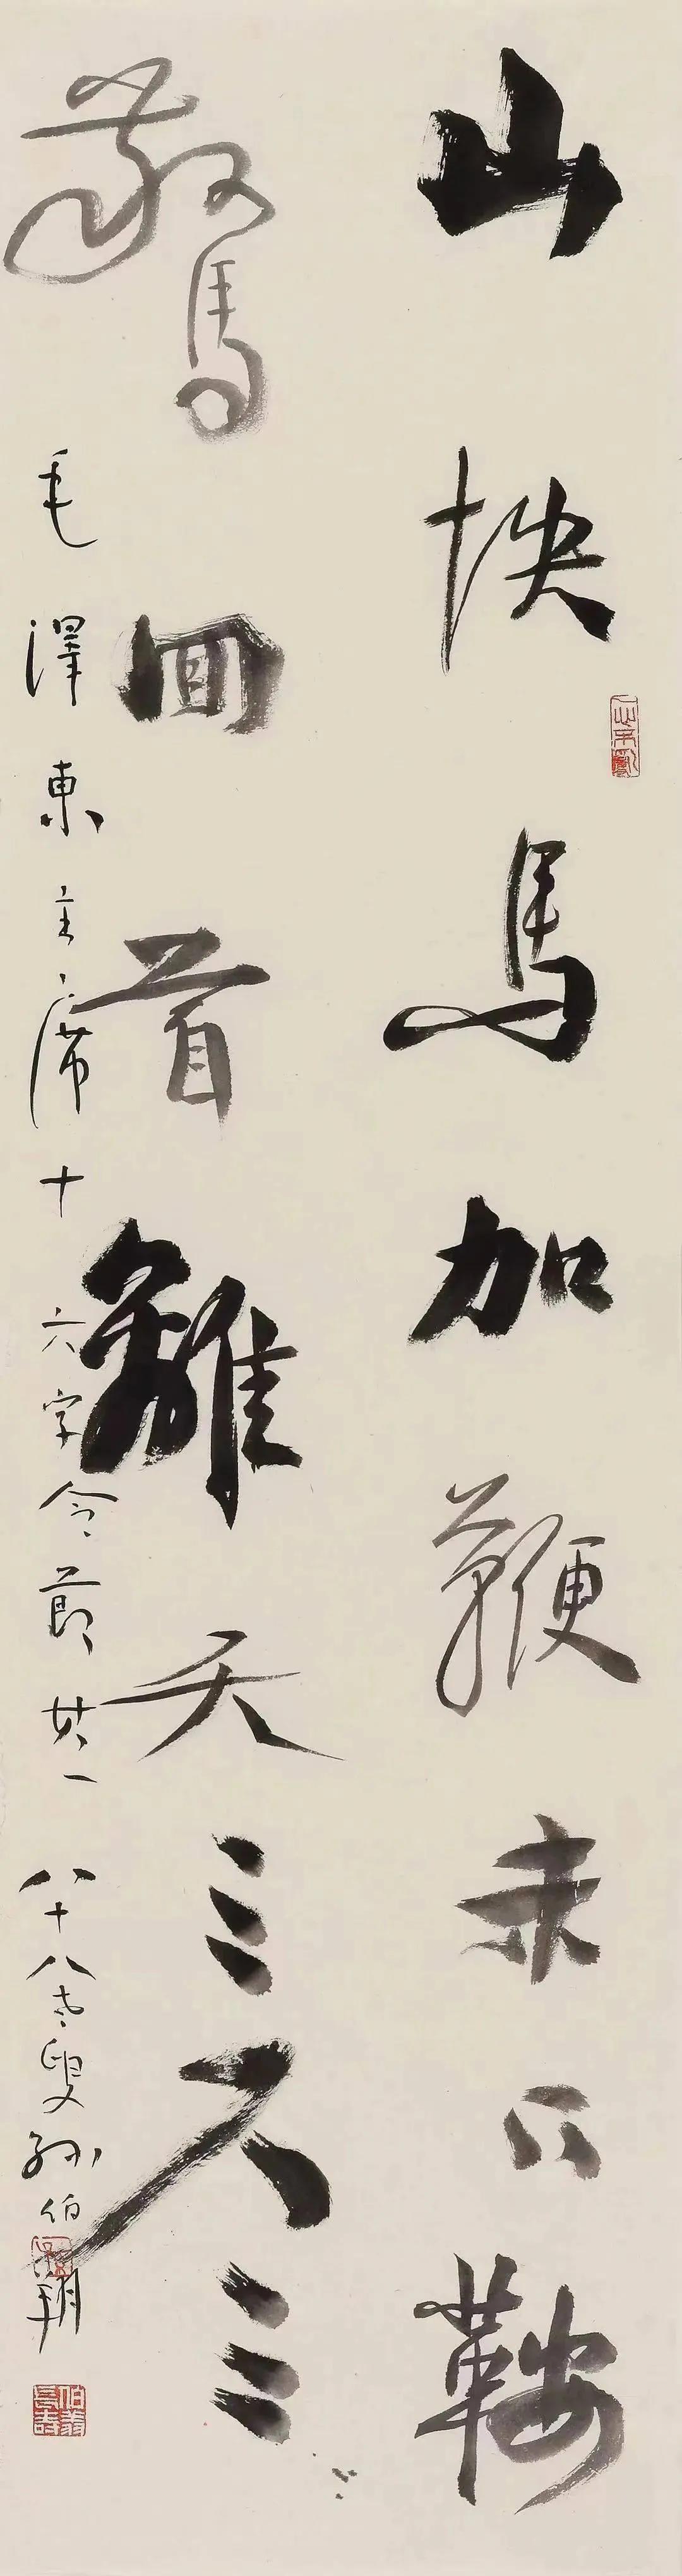 山快馬加鞭未下鞍
驚回首離天三尺三
毛澤東主席十六字令節其一 八十八老叟孫伯翔
伯翔長壽